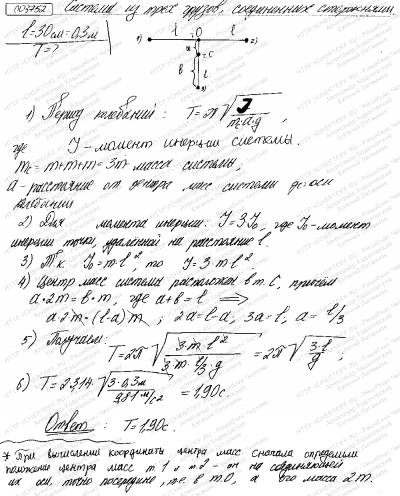 003752 Система из трех грузов, соединенных стержнями.
l=30см=0,3м
T=?
1) l O l 2)
a C
b l
3)
1) Период колебаний: T=2π√(J/(m_c·a·g)),
где J-момент инерции системы.
m_c=m+m+m=3m-масса системы,
a-расстояние от центра масс системы до оси
колебания
2) Для момента инерции: J=3J₀, где J₀-момент
инерции точки, удаленной на расстояние l.
3) Т.к. J₀=m·l², то J=3·m·l²
4) Центр масс системы расположен в т.C, причем
a·2m=b·m, где a+b=l ⟹
a·2m=(l-a)m; 2a=l-a, 3a=l, a=l/3
5) Получаем:
T=2π√(3·m·l²/(3·m·l/3·g))=2π√(3·l/g),
6) T=2·3,14·√(3·0,3м/9,81м/с²)=1,90с.
Ответ: T=1,90с.
* При вычислении координаты центра масс сначала определим
положение центра масс т.1 и т.2 - он на соединяющей
их оси, точно посередине, т.е. в т.O, а его масса 2m.